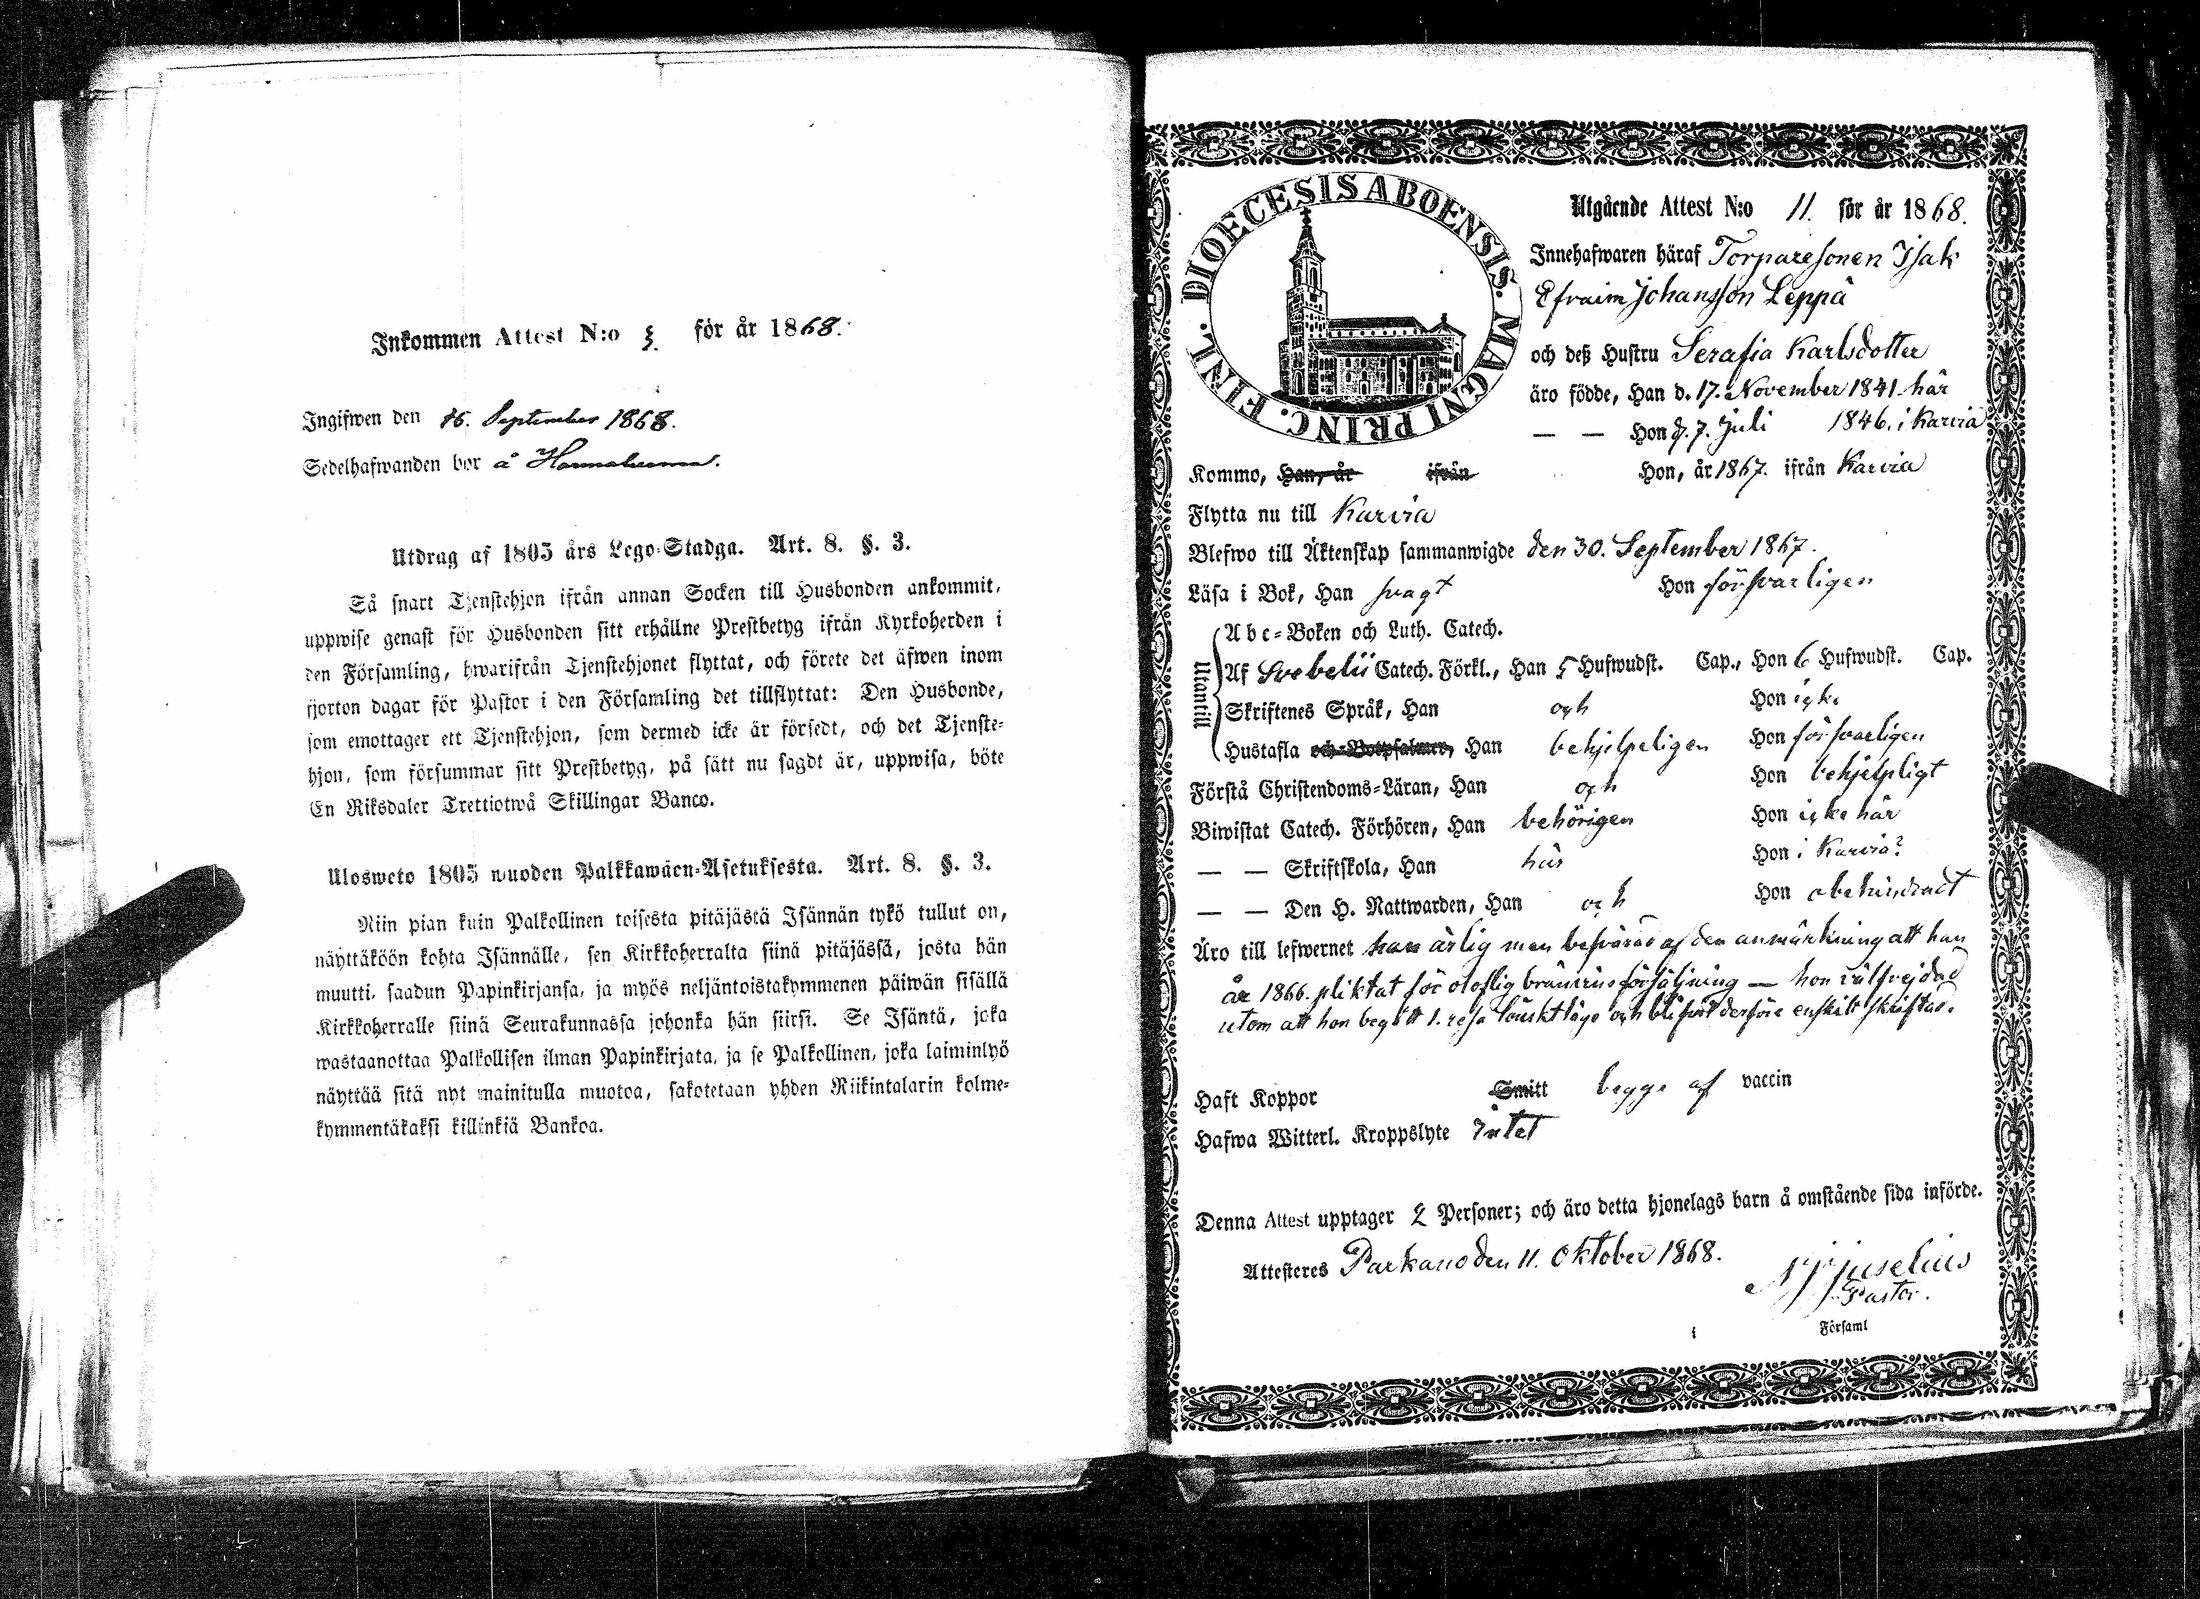 Inkommen Attest N:o 5. för år 1868.
Ingifwen den 16. September 1868.
Sedelhafwanden bor å
Utdrag af 1805 års Lego-Stadga. Art. 8. §. 3.
Så snart Tjenstehjon ifrån annan Socken till Husbonden ankommit,
uppwise genast för Husbonden sitt erhållne Prestbetyg ifrån Kyrkoherden i
den Församling, hwarifrån Tjenstehjonet flyttat, och förete det äfwen inom
fjorton dagar för Pastor i den Församling det tillflyttat: Den Husbonde,
som emottager ett Tjenstehjon, som dermed icke är försedt, och det Tjenste-
hjon, som försummar sitt Prestbetyg, på sätt nu sagdt är, uppwisa, böte
En Riksdaler Trettiotwå Skillingar Banco.
Ulosweto 1805 wuoden Palkkawäen-Asetuksesta. Art. 8. §. 3.
Niin pian kuin Palkollinen toisesta pitäjästä Isännän tykö tullut on,
näyttäköön kohta Isännälle, sen Kirkkoherralta siinä pitäjässä, josta hän
muutti, saadun Papinkirjansa, ja myös neljäntoistakymmenen päiwän sisällä
Kirkkoherralle siinä Seurakunnassa johonka hän siirsi. Se Isäntä, joka
wastaanottaa Palkollisen ilman Papinkirjata, ja se Palkollinen, joka laiminlyö
näyttää sitä nyt mainitulla muotoa, sakotetaan yhden Riikintalarin kolme-
kymmentäkaksi killinkiä Bankoa.
DIOECESIS ABOENSIS. MAGNI PRINC. FINL.
Utgående Attest N:o 11. för år 1868.
Innehafwaren häraf Torparesonen Isak
Efraim Johansson Leppä
och deß Hustru Serafia Karlsdotter
äro födde, Han d. 17. November 1841. här
— — Hon d. 7. Juli 1846. i Karvia
Kommo, Han, år ifrån Hon, år 1867. ifrån Karvia
Flytta nu till Karvia
Blefwo till Äktenskap sammanwigde den 30. September 1867.
Läsa i Bok, Han svagt Hon försvarligen
Utantill
Abc-Boken och Luth. Catech.
Af Svebelii Catech. Förkl., Han 5 Hufwudst. Cap., Hon 6 Hufwudst. Cap.
Skriftenes Språk, Han och Hon icke
Hustafla och Botpsalmer, Han behjelpeligen Hon försvarligen
Förstå Christendoms-Läran, Han och Hon behjelpligt
Biwistat Catech. Förhören, Han behörigen Hon icke här
— — Skriftskola, Han här Hon i Karvia?
— — Den H. Nattwarden, Han och Hon obehindradt
Äro till lefwernet han ärlig men besvärad af den anmärkning att han
år 1866. pliktat för olaflig bränvinsförsäljning — hon välfrejdad
utom att hon begått 1. resa lönskaläge och blifvit derföre enskilt skriftad.
Haft Koppor Smitt begge af vaccin
Hafwa Witterl. Kroppslyte intet
Denna Attest upptager 2 Personer; och äro detta hjonelags barn å omstående sida införde.
Attesteres Parkano den 11. Oktober 1868.
Juselius
Pastor.
i Församl